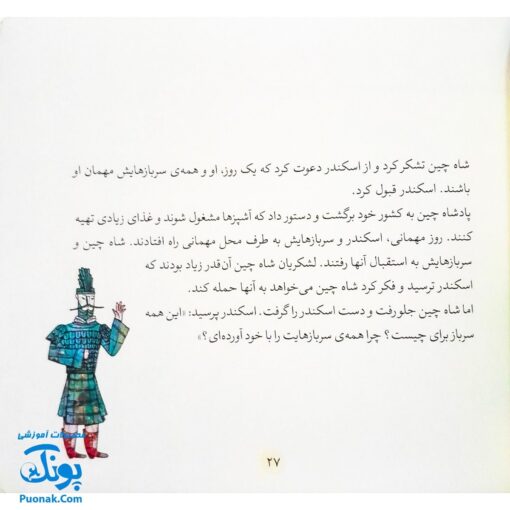 شاه چین تشکر کرد و از اسکندر دعوت کرد که یک روز، او و همه‌ی سربازهایش مهمان او
باشند. اسکندر قبول کرد.
پادشاه چین به کشور خود برگشت و دستور داد که آشپزها مشغول شوند و غذای زیادی تهیه
کنند. روز مهمانی، اسکندر و سربازهایش به طرف محل مهمانی راه افتادند. شاه چین و
سربازهایش به استقبال آنها رفتند. لشکریان شاه چین آن‌قدر زیاد بودند که
اسکندر ترسید و فکر کرد شاه چین می‌خواهد به آنها حمله کند.
اما شاه چین جلو رفت و دست اسکندر را گرفت. اسکندر پرسید: «این همه
سرباز برای چیست؟ چرا همه‌ی سربازهایت را با خود آورده‌ای؟»
آموزشی
پونک
Puonak.Com
۲۷